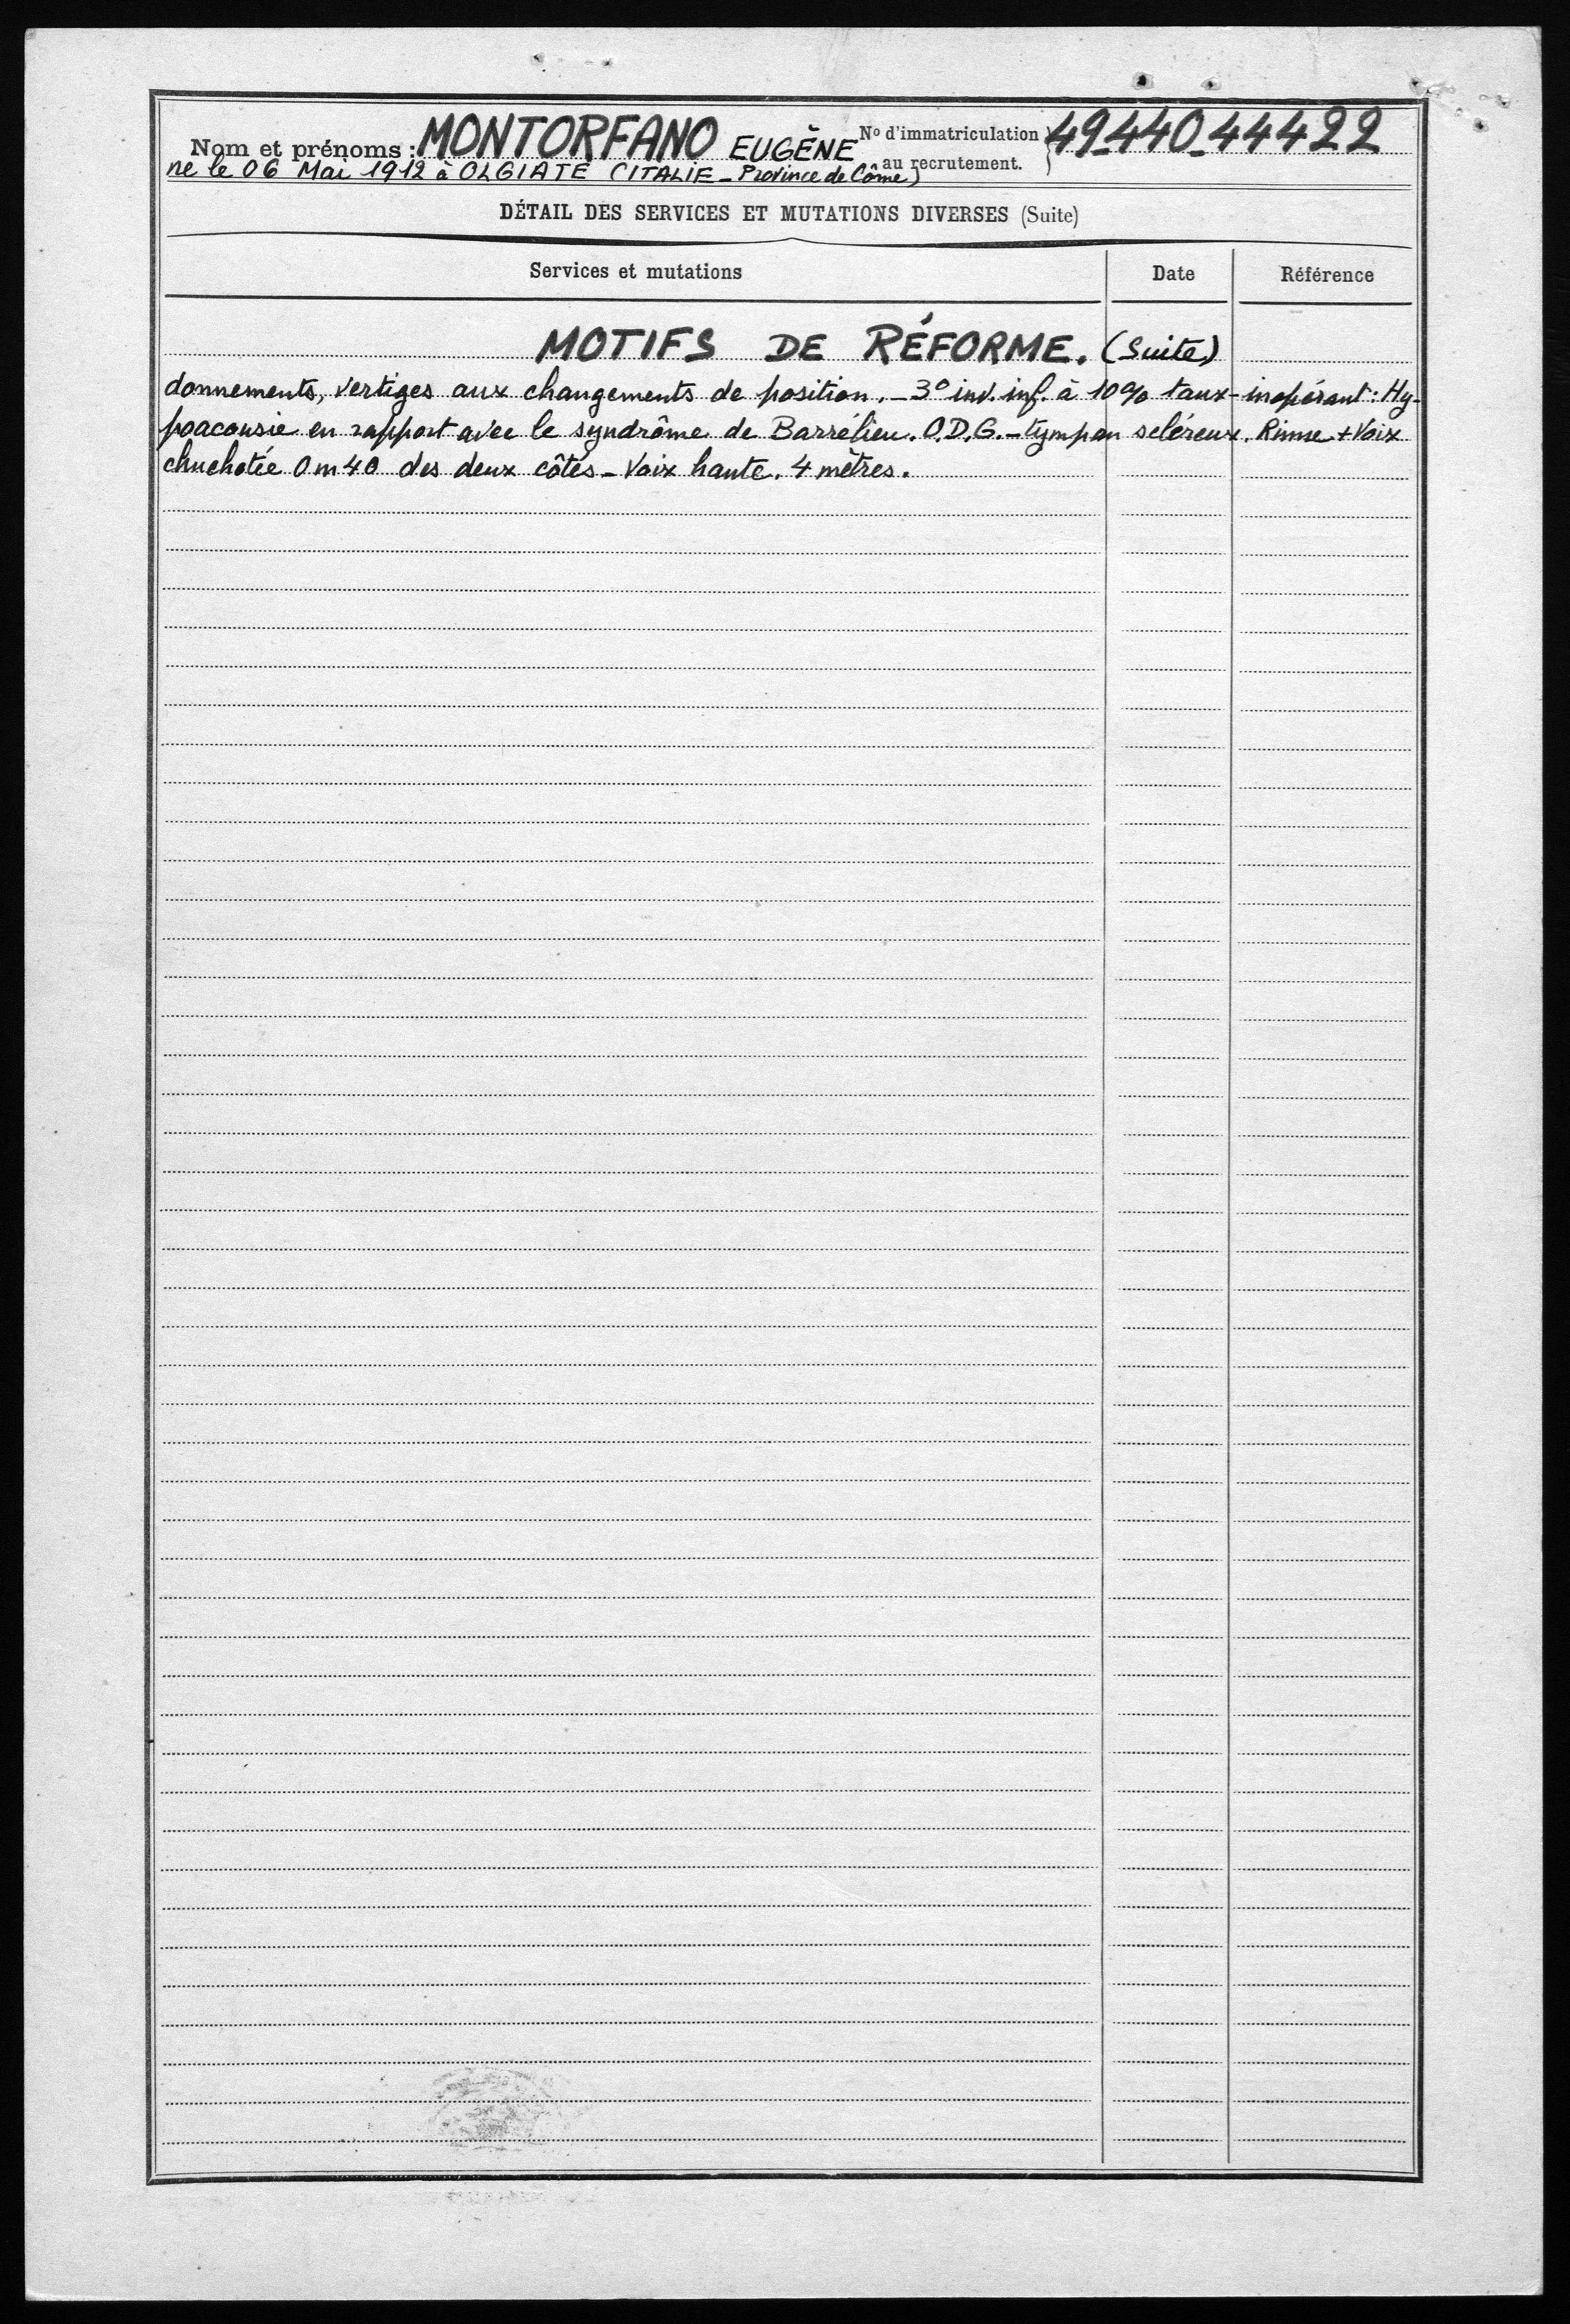 Nom et prénoms : MONTORFANO EUGÈNE N° d'immatriculation au recrutement. 49-440-44422
né le 06 Mai 1912 à OLGIATE (ITALIE - Province de Côme)
DÉTAIL DES SERVICES ET MUTATIONS DIVERSES (Suite)
Services et mutations Date Référence
MOTIFS DE RÉFORME. (Suite)
donnements, vertiges aux changements de position. - 3° inv. inf. à 10% taux - inopérant : Hy-
poacousie en rapport avec le syndrôme de Barrélieu. O.D.G. - tympan scléreux. Rinne + Voix
chuchotée 0m40 des deux côtés - Voix haute. 4 mètres.